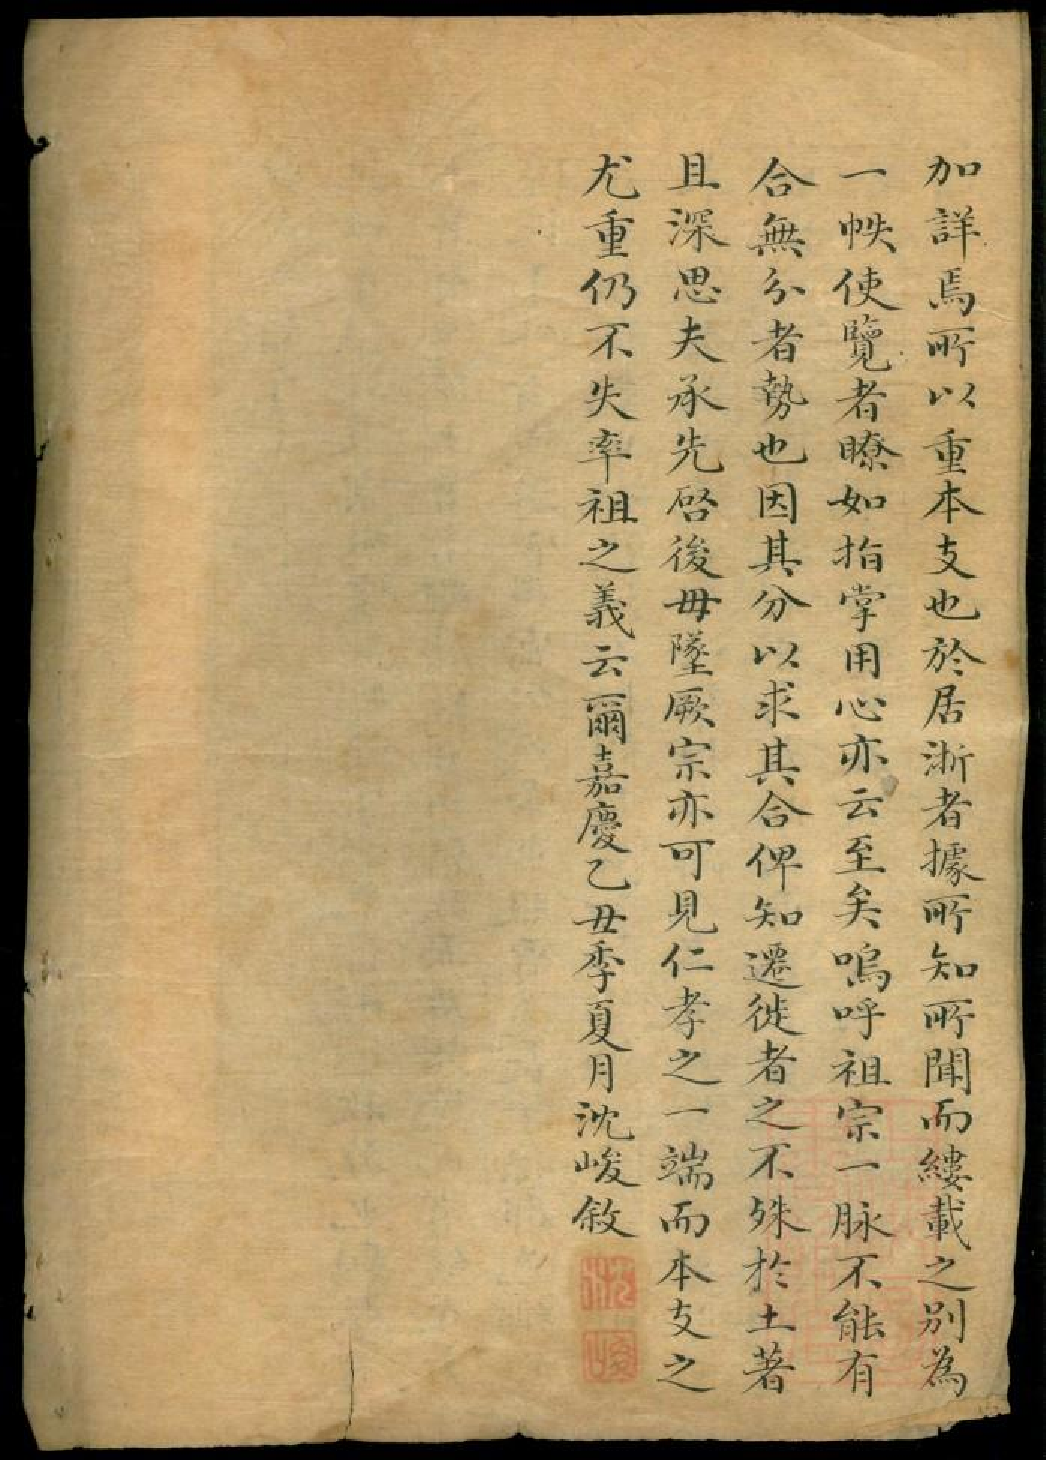 加詳焉所以重本支也於居浙者據所知所聞而縷載之别為
一帙使覽者瞭如指掌用心亦云至矣嗚呼祖宗一脉不能有
合無分者勢也因其分以求其合俾知遷徙者之不殊於土著
且深思夫承先啓後毋墜厥宗亦可見仁孝之一端而本支之
尤重仍不失率祖之義云爾嘉慶乙丑季夏月沈峻敘
沈
峻